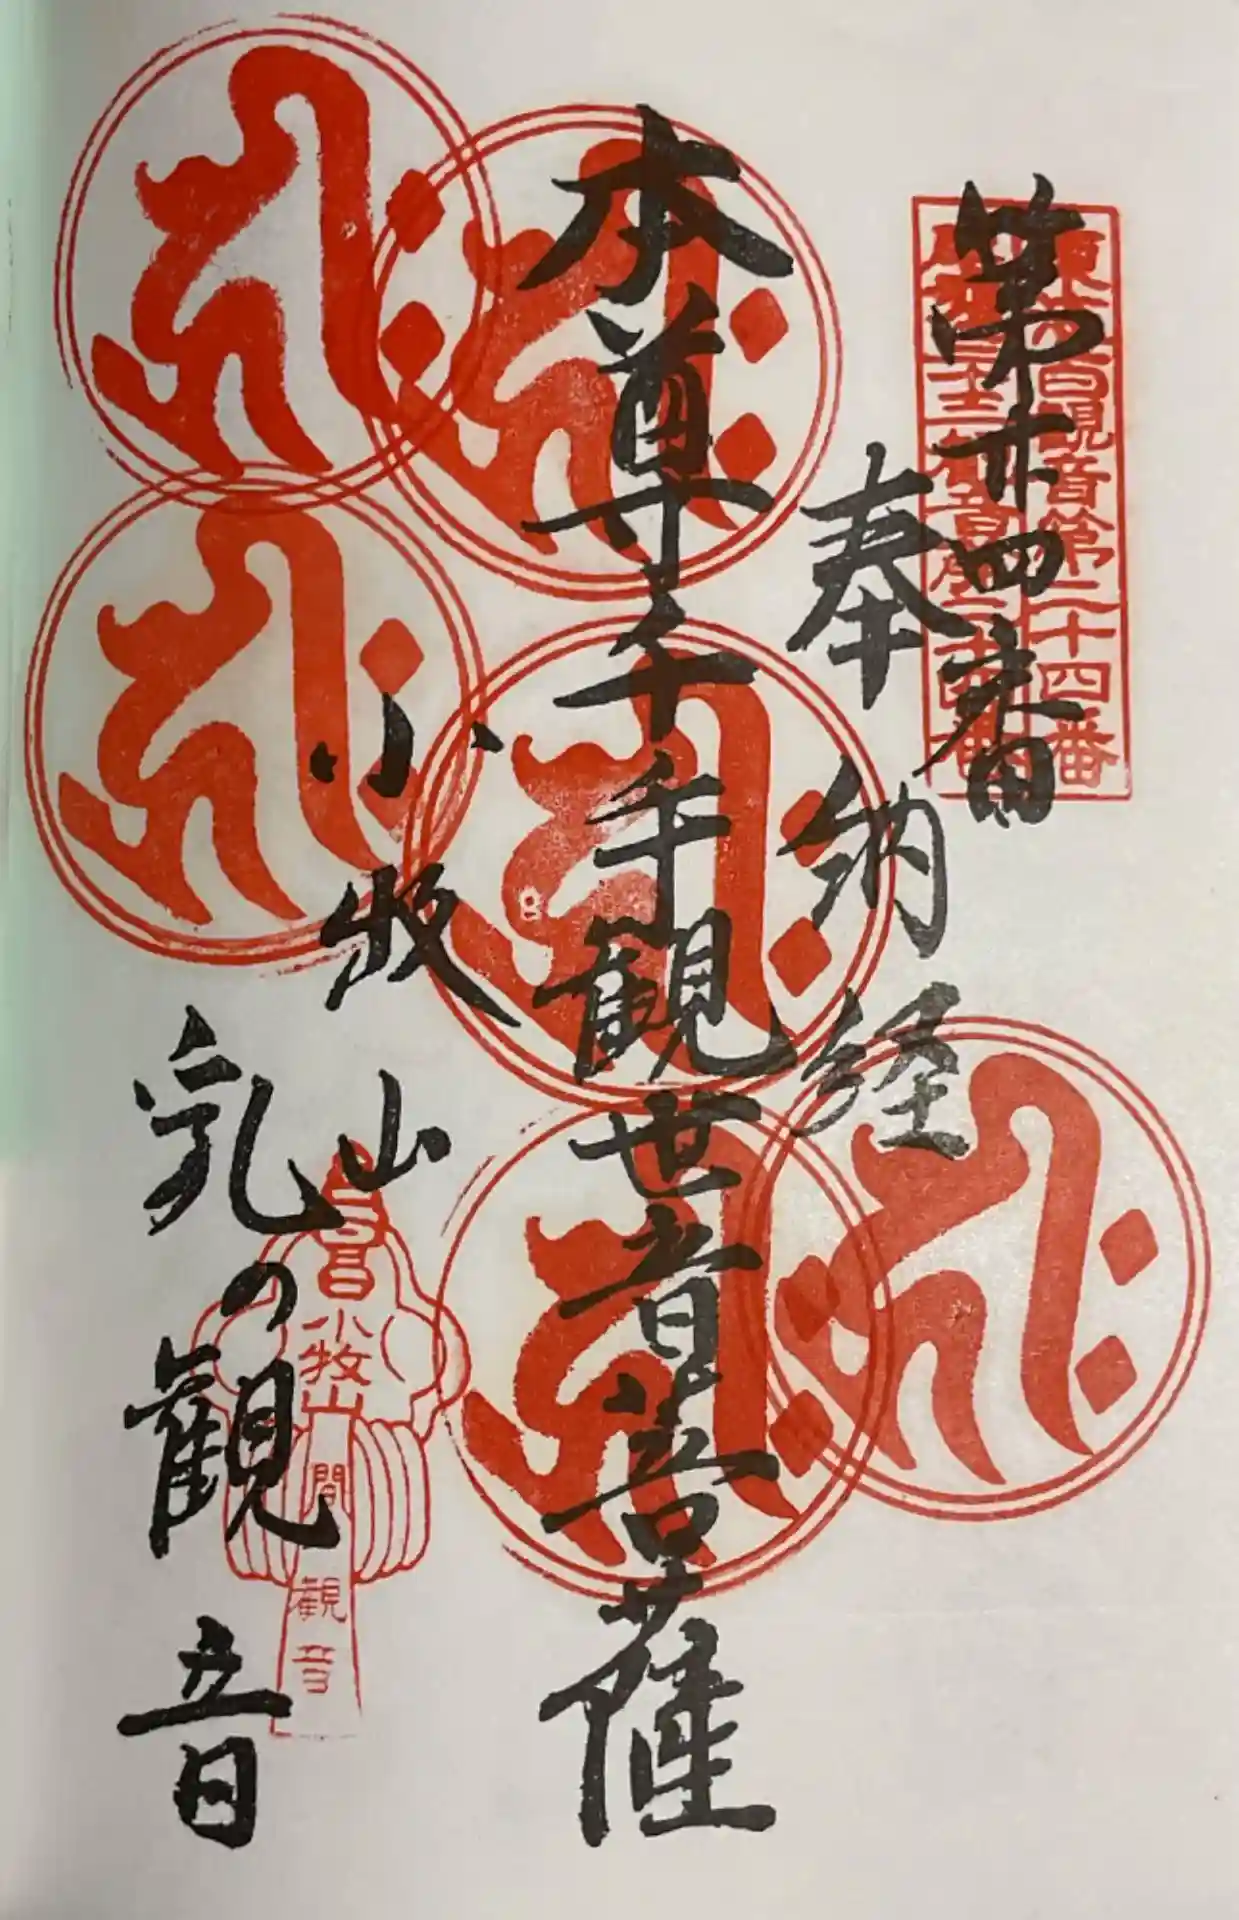 第廿四番
奉納経
本尊千手観世音菩薩
小牧山
乳の観音
観音第二十四番
小牧山
間
観音
8